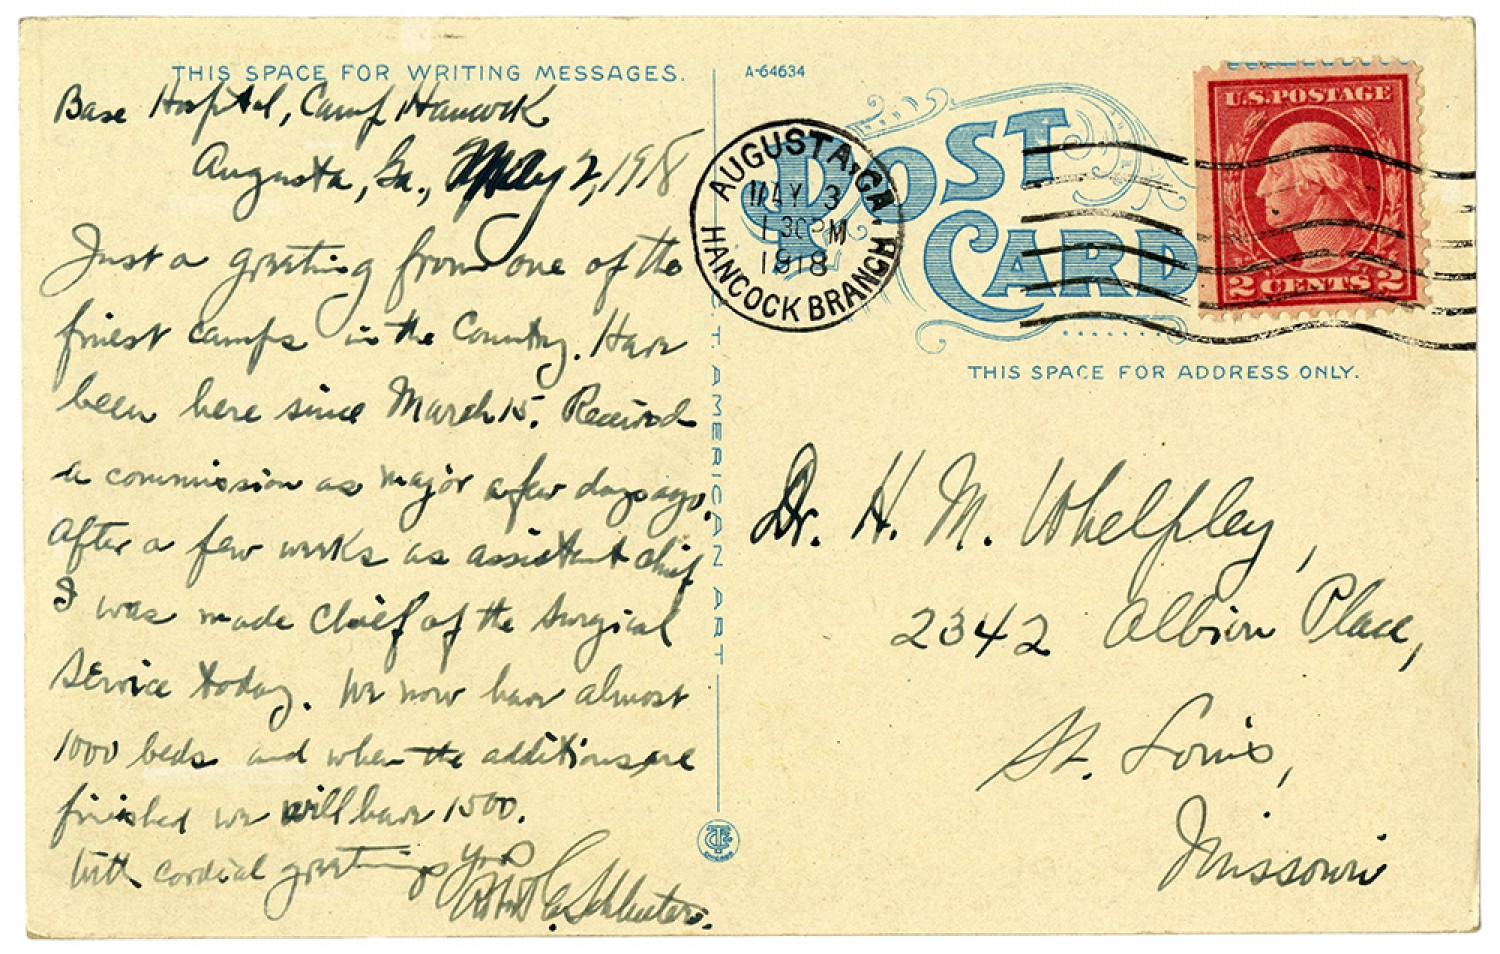 THIS SPACE FOR WRITING MESSAGES.
Base Hospital, Camp Hancock
Augusta, Ga., May 2, 1918
Just a greeting from one of the
finest camps in the Country. Have
been here since March 15. Received
a commission as major a few days ago.
After a few weeks as assistant chief
I was made Chief of the Surgical
Service today. We now have almost
1000 beds and when the additions are
finished we will have 1500.
With cordial greetings yours
Schlueter.
C.T. AMERICAN ART
A-64634
POST
CARD
AUGUSTA, GA.
MAY 3
1 30 PM
1918
HANCOCK BRANCH
U.S. POSTAGE
2 CENTS 2
THIS SPACE FOR ADDRESS ONLY.
Dr. H. M. Whelpley,
2342 Albion Place,
St. Louis,
Missouri